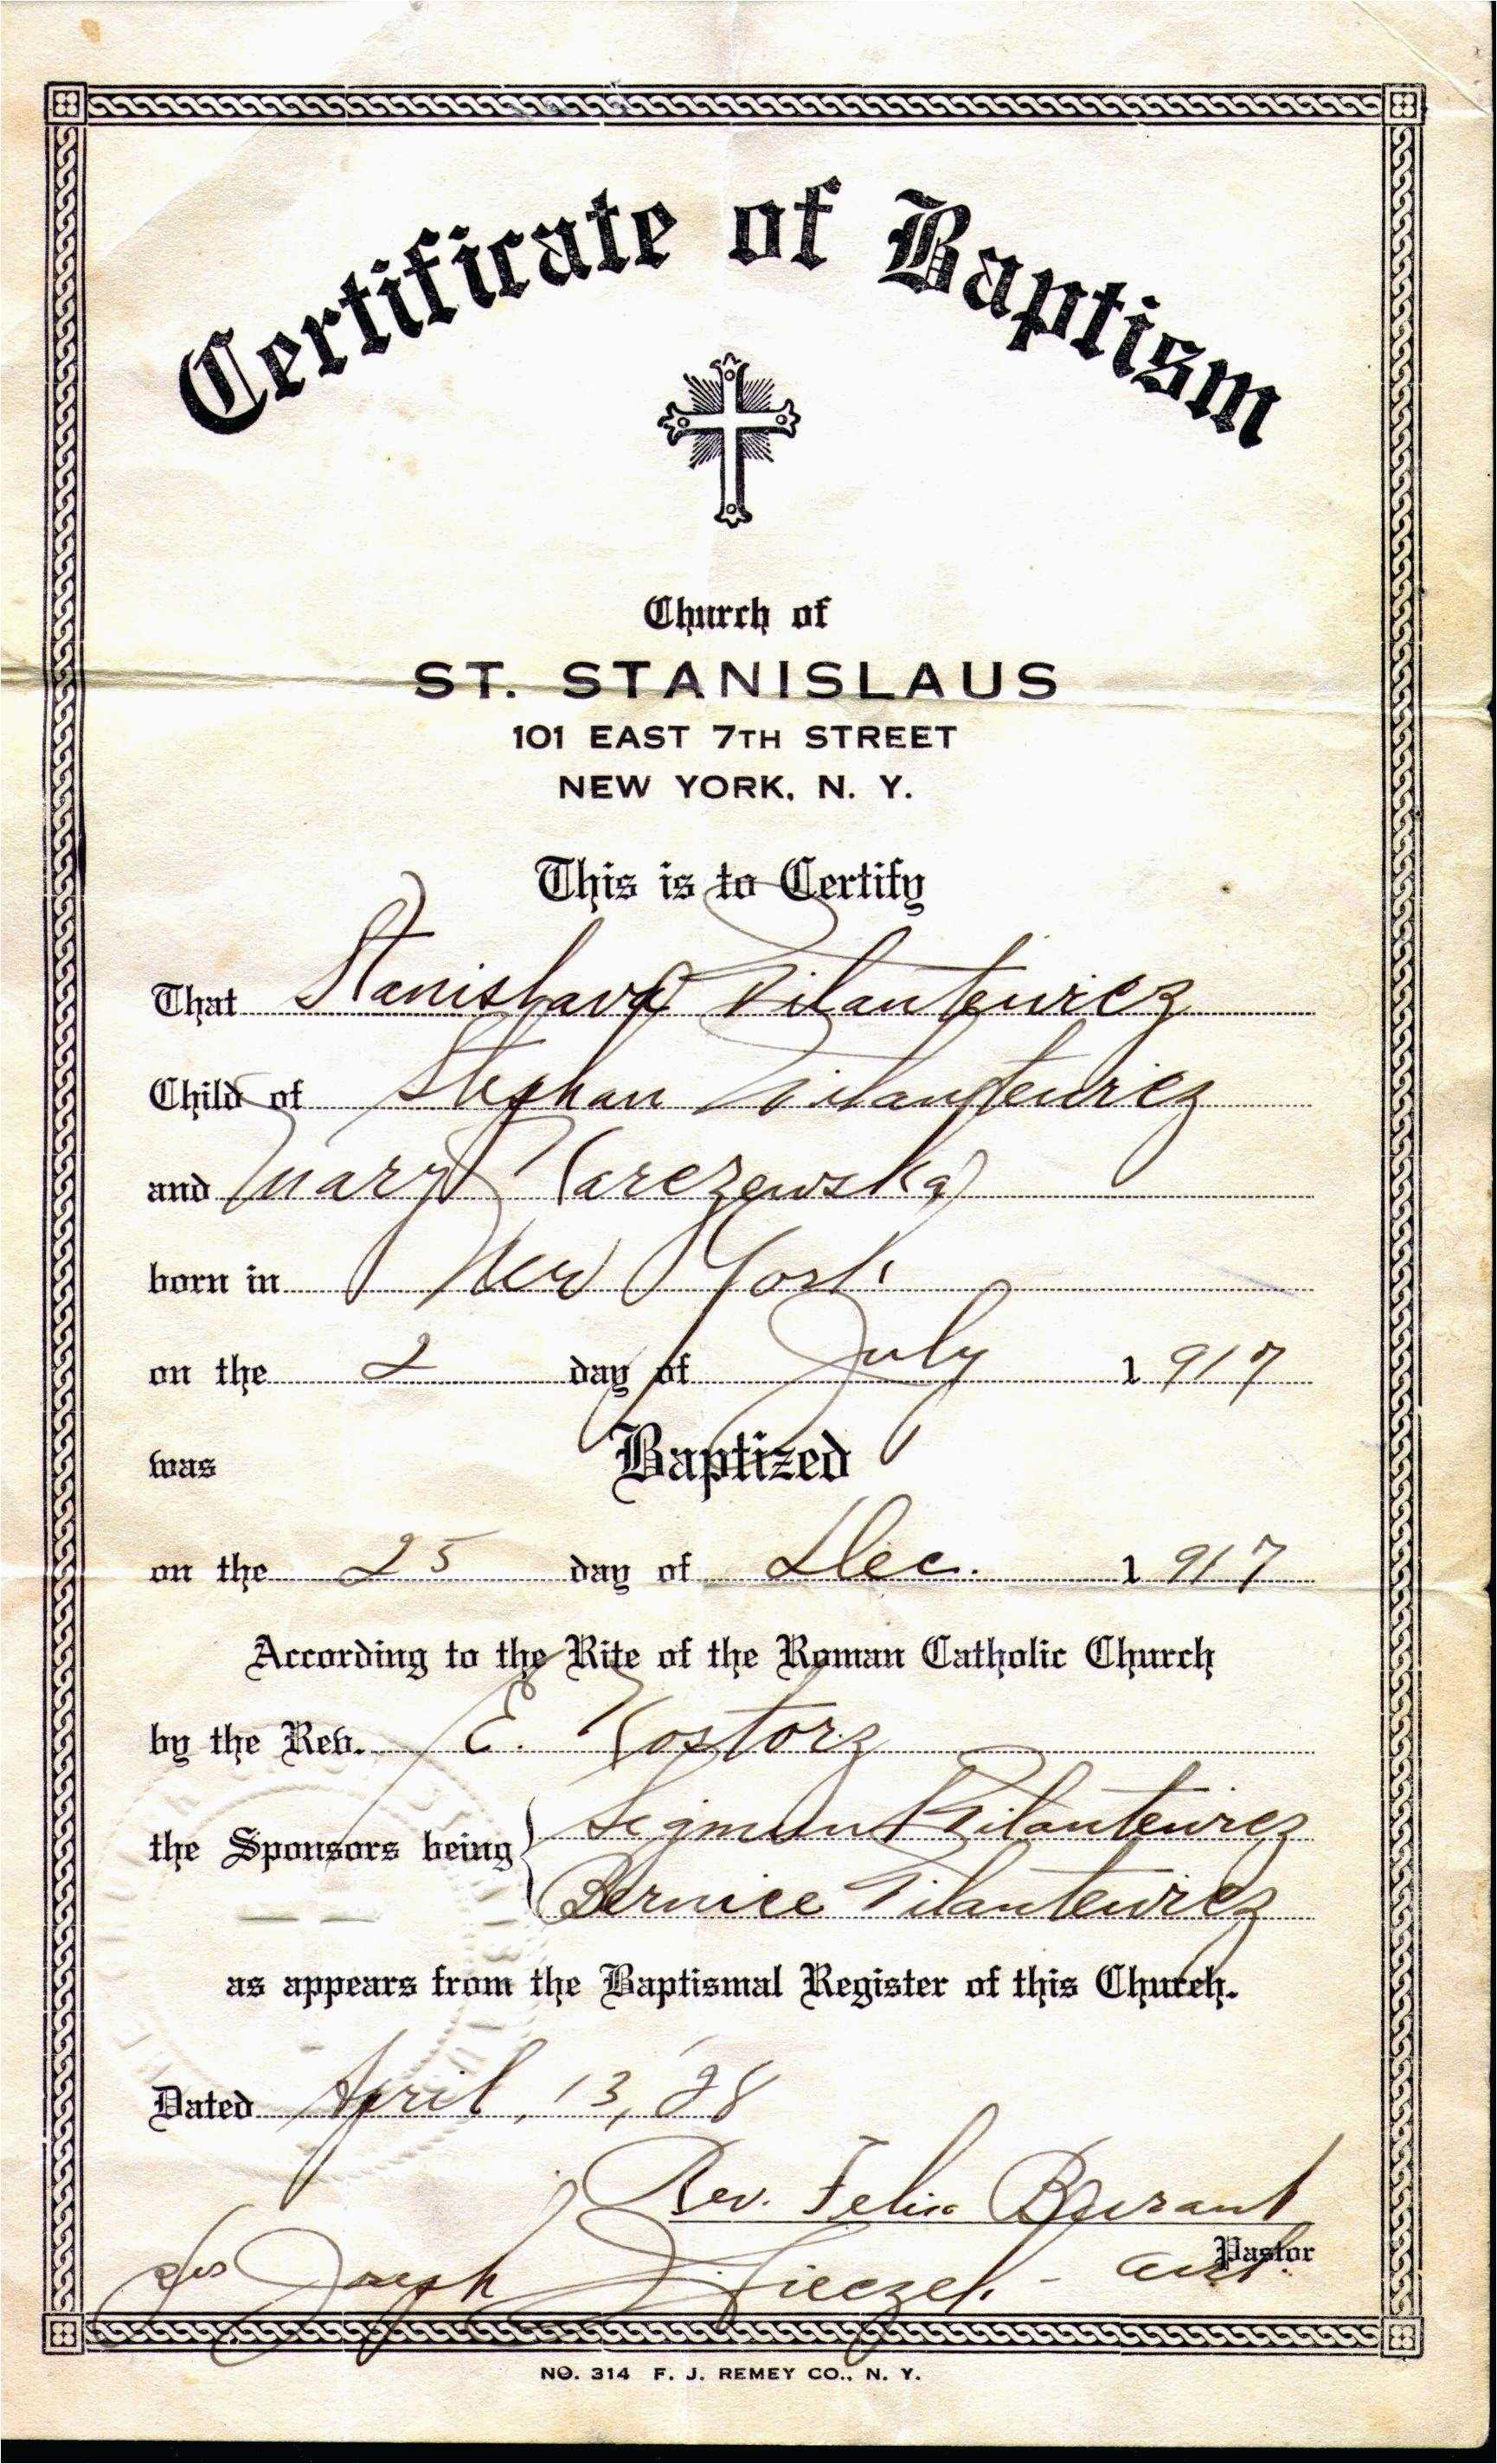 Certificate of Baptism
Church of
ST. STANISLAUS
101 EAST 7TH STREET
NEW YORK, N. Y.
This is to Certify
That Stanislava Pilantewicz
Child of Stephan Pilantewicz
and Mary Karczewska
born in New York
on the 2 day of July 1917
was Baptized
on the 25 day of Dec. 1917
According to the Rite of the Roman Catholic Church
by the Rev. E. Kostorz
the Sponsors being Sigmunt Pilantewicz
Bernice Pilantewicz
as appears from the Baptismal Register of this Church.
Dated April, 13, '28
Rev. Felix Burant
Pastor
Joseph
NO. 314 F. J. REMEY CO., N. Y.